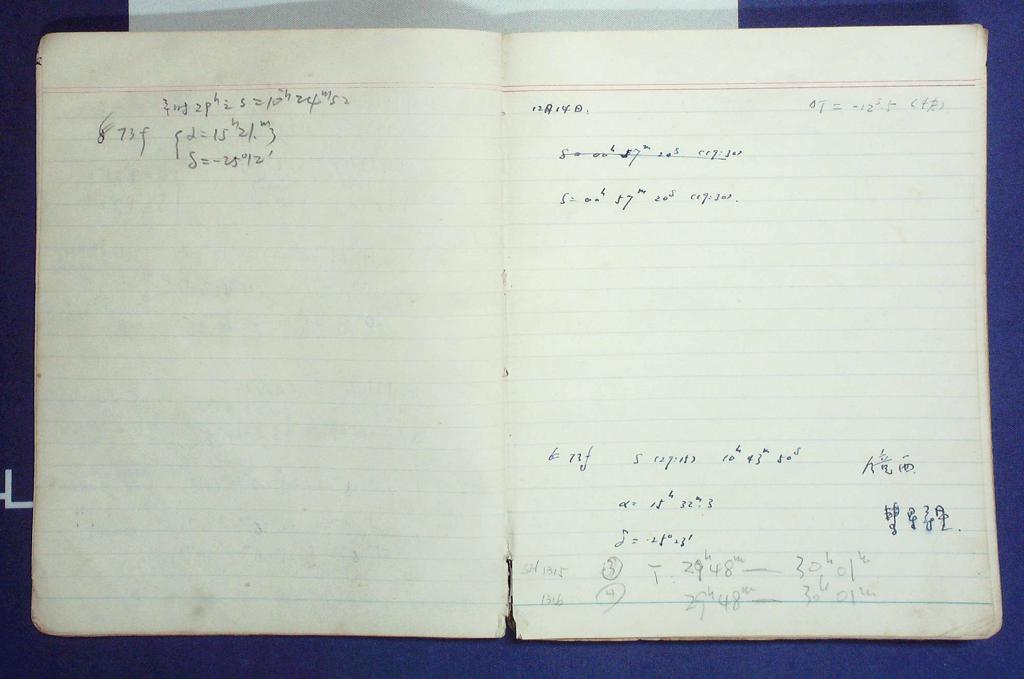 29ʰ S=10ʰ24ᵐ52
73f {α=15ʰ21.ᵐ}
δ=-25°12'
12月14日. ΔT = -12ˢ.5
S= 00ʰ 57ᵐ 20ˢ (19:30)
S= 00ʰ 57ᵐ 20ˢ (19:30).
73f S (29:15) 10ʰ 43ᵐ 50ˢ 镜西
α= 15ʰ 32ᵐ.3
δ= -25°23'
1315 ③ T: 29ʰ48ᵐ — 30ʰ01ᵐ
1316 ④ 29ʰ48ᵐ — 30ʰ01ᵐ